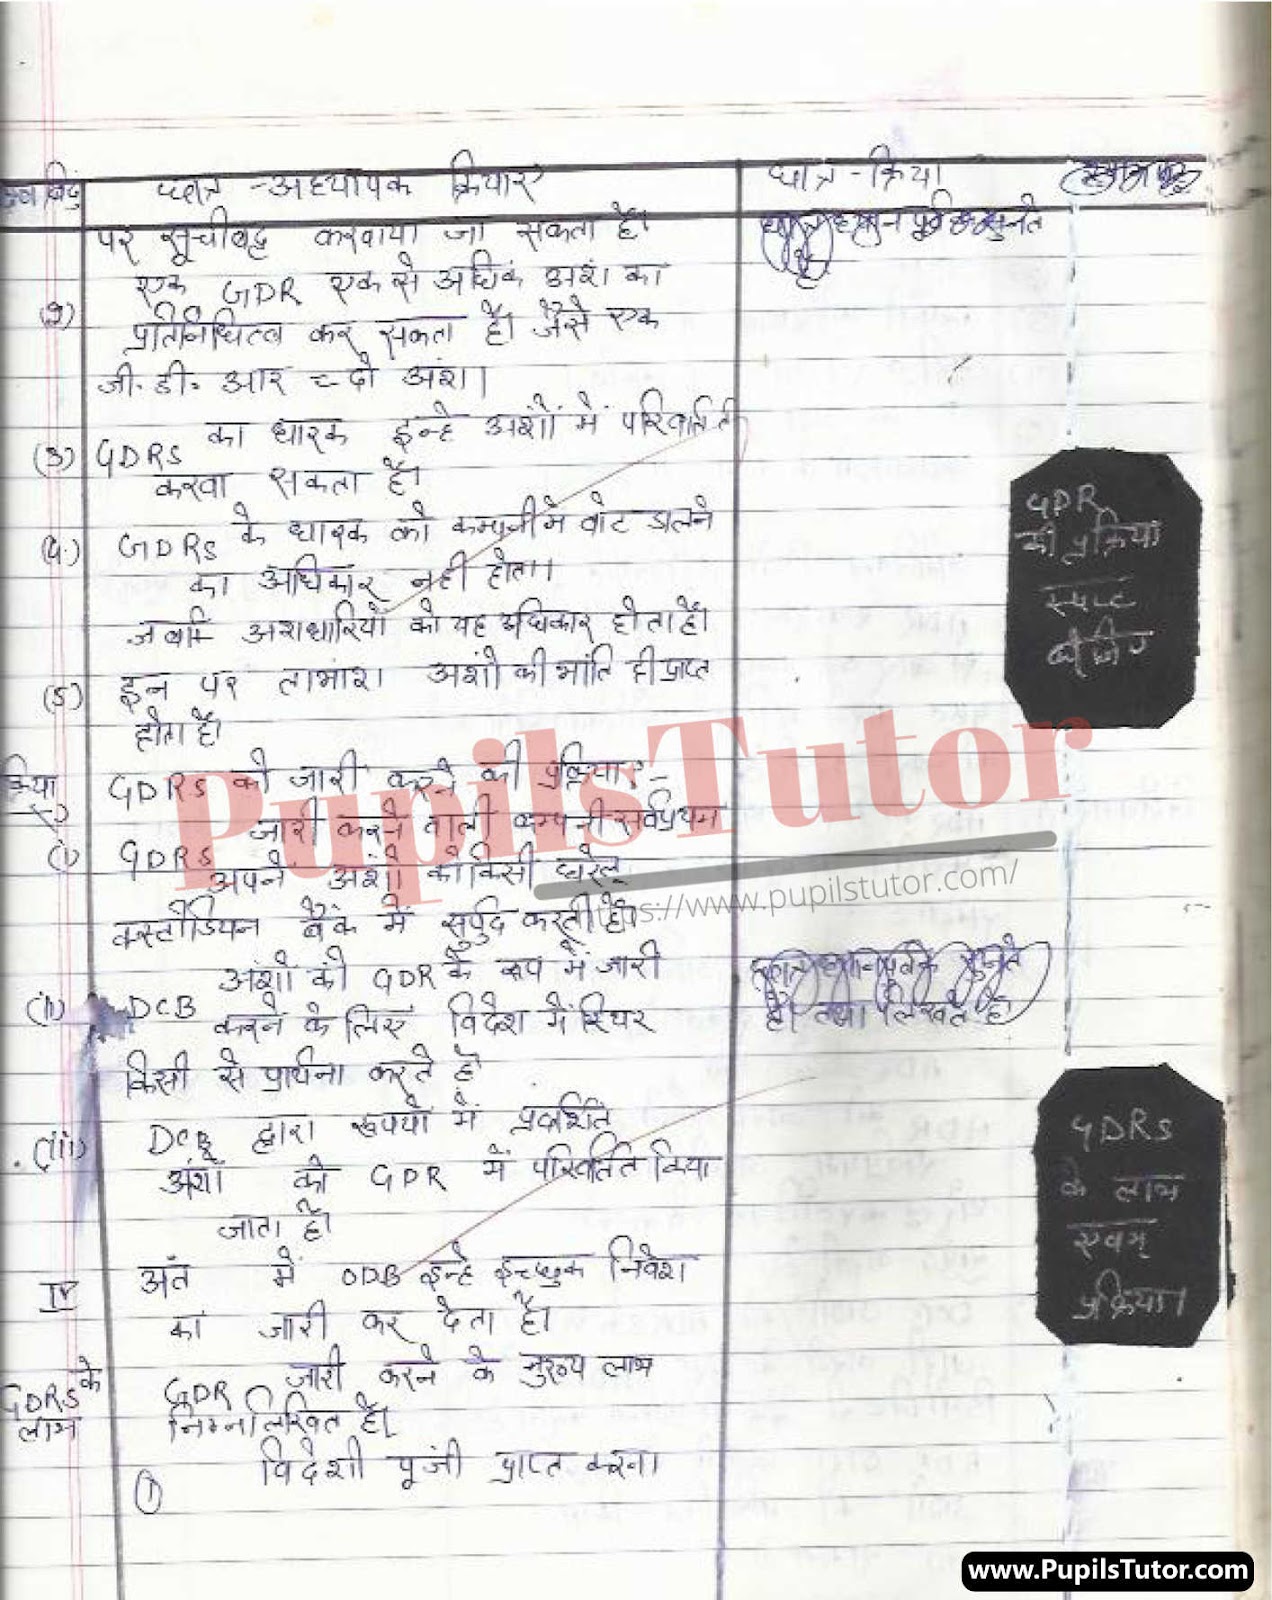 छात्र - अध्यापक क्रियाएं
छात्र - क्रिया
पर सूचीबद्ध करवाया जा सकता है।
छात्र ध्यान पूर्वक सुनते
है।
(२) एक GDR एक से अधिक अंश का
प्रतिनिधित्व कर सकता है। जैसे एक
जी. डी. आर = दो अंश।
(3) GDRs का धारक इन्हे अंशों में परिवर्तित
करवा सकता है।
(4.) GDRs के धारक को कम्पनी में वोट डालने
का अधिकार नही होता।
जबकि अंशधारियों को यह अधिकार होता है।
(5) इन पर लाभांश अंशों की भांति ही प्राप्त
होता है।
GDR
की प्रक्रिया
स्पष्ट
कीजिए
GDRs को जारी करने की प्रक्रिया :-
(i) GDRs जारी करने वाली कम्पनी सर्वप्रथम
अपने अंशों को किसी घरेलू
कस्टोडियन बैंक में सुर्पुद करती है।
(ii) DCB अंशों को GDR के रूप में जारी
करने के लिए विदेश में स्थिर
किसी से प्रार्थना करते है
छात्र ध्यानपूर्वक सुनते
है। तथा लिखते है।
(iii) DCB द्वारा रूपयों में प्रदर्शित
अंशों को GDR में परिवर्तित किया
जाता है।
IV अंत में ODB इन्हे इच्छुक निवेश
को जारी कर देता है।
GDRs
के लाभ
एवम्
प्रक्रिया।
GDRs के
लाभ
GDR जारी करने के मुख्य लाभ
निम्नलिखित है।
① विदेशी पूंजी प्राप्त करना।
PupilsTutor
https://www.pupilstutor.com/
www.PupilsTutor.com